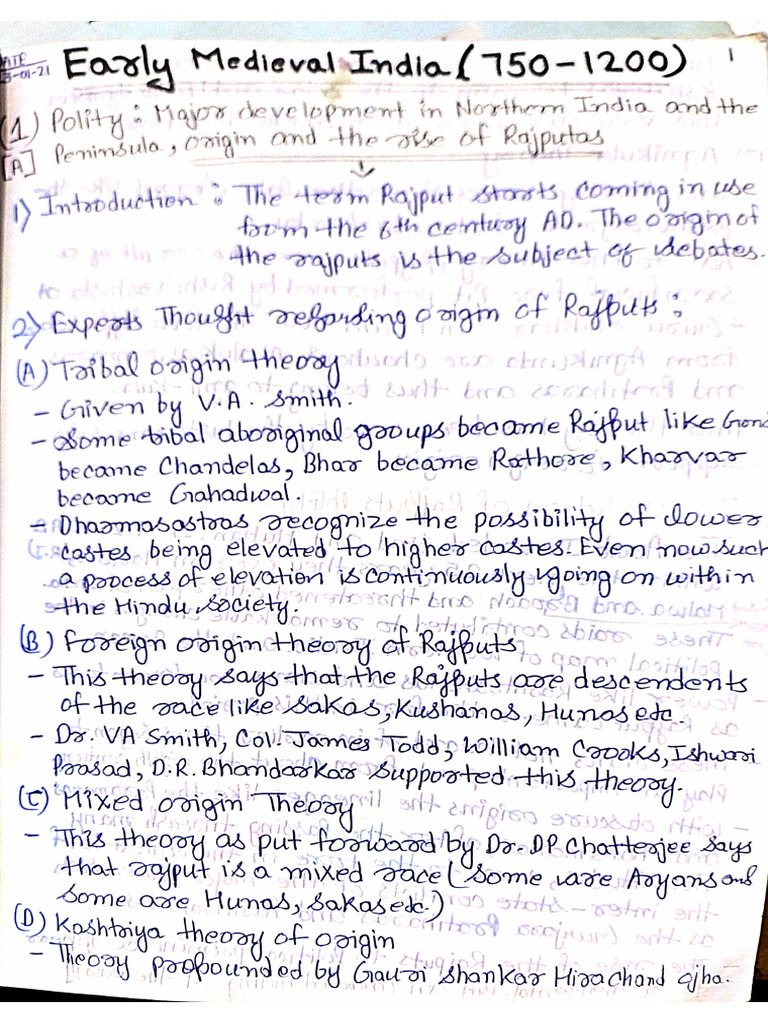 Early Medieval India (750-1200) 1
(1) Polity: Major development in Northern India and the
[A] Peninsula, origin and the rise of Rajputas
1) Introduction: The term Rajput starts coming in use
from the 6th century AD. The origin of
the rajputs is the subject of debates.
2) Experts Thought regarding origin of Rajputs:
(A) Tribal origin theory
- Given by V.A. Smith.
- Some tibal aboriginal groups became Rajput like Gond
became Chandelas, Bhar became Rathore, Kharvar
became Gahadwal.
- Dharmasastras recognize the possibility of lower
castes being elevated to higher castes. Even now such
a process of elevation is continuously going on within
the Hindu society.
(B) foreign origin theory of Rajputs
- This theory says that the Rajputs are descendents
of the race like Sakas, Kushanas, Hunas etc.
- Dr. VA Smith, Col. James Todd, William Crooks, Ishwari
Prasad, D.R. Bhandarkar supported this theory.
(C) Mixed origin Theory
- This theory as put forward by Dr. DP Chatterjee says
that rajput is a mixed race (some are Aryans and
some are Hunas, Sakas etc.)
(D) Kashtriya theory of origin
- Theory propounded by Gauri Shankar Hirachand ojha.